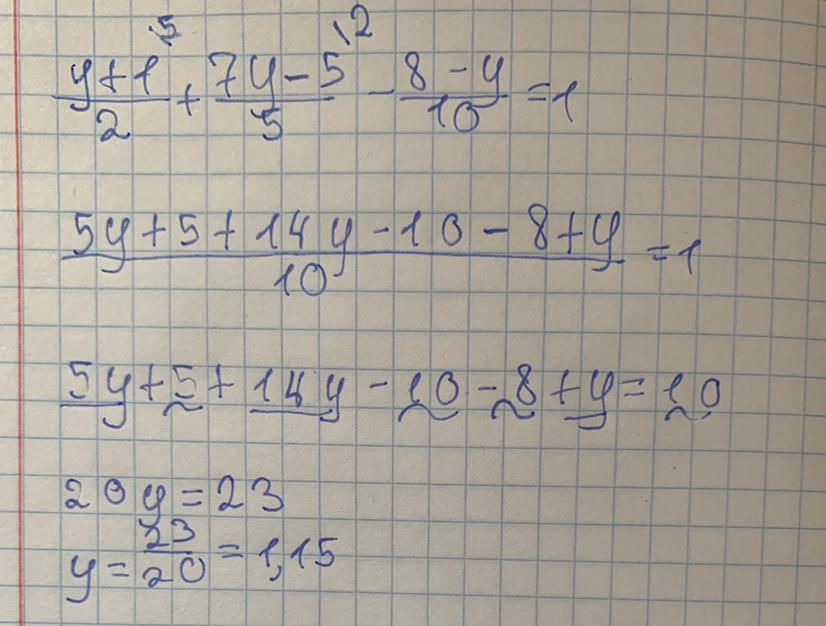 (y+1)/2 \5 + (7y-5)/5 \2 - (8-y)/10 = 1
(5y+5+14y-10-8+y)/10 = 1
5y+5+14y-10-8+y=10
20y=23
y=23/20=1,15